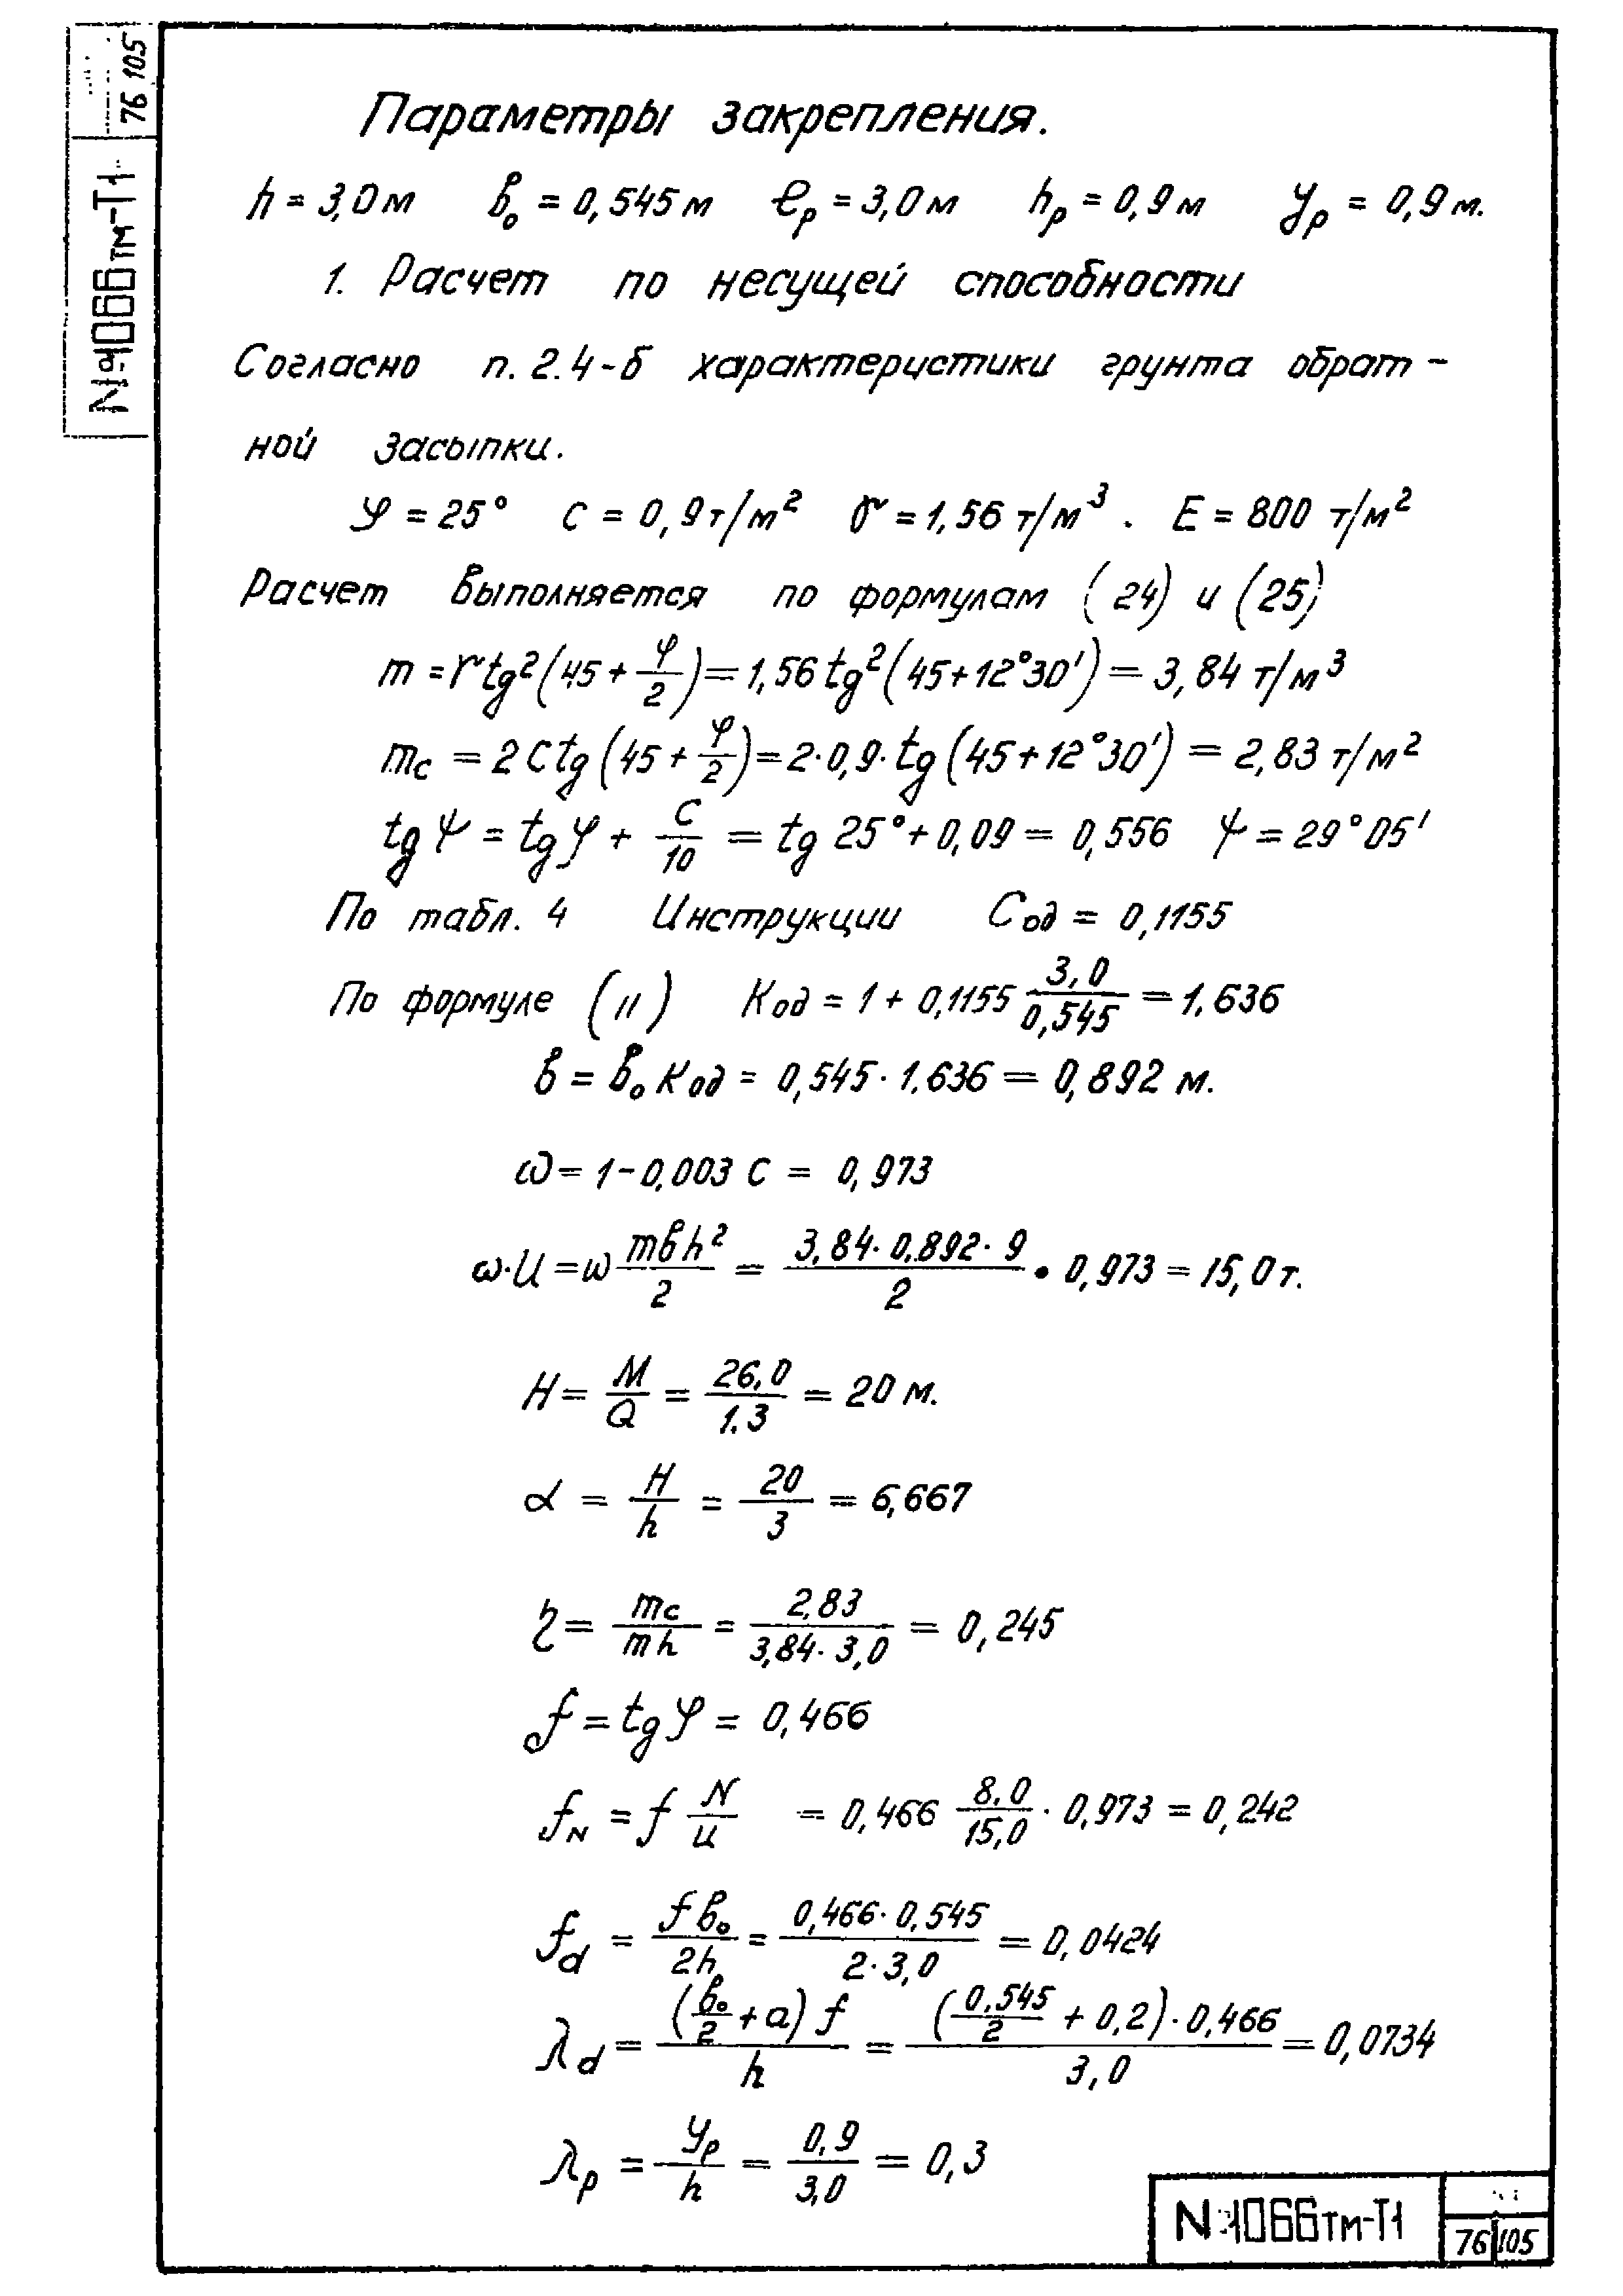 76 105
N 1066тм-Т1
Параметры закрепления.
h = 3,0 м   b₀ = 0,545 м   ℓр = 3,0 м   hр = 0,9 м   yр = 0,9 м.
1. Расчет по несущей способности
Согласно п. 2.4-б характеристики грунта обрат-
ной засыпки.
φ = 25°   c = 0,9 т/м²   γ = 1,56 т/м³.   E = 800 т/м²
Расчет выполняется по формулам (24) и (25)
m = γ tg²(45 + φ/2) = 1,56 tg²(45 + 12°30′) = 3,84 т/м³
mc = 2 C tg(45 + φ/2) = 2·0,9·tg(45 + 12°30′) = 2,83 т/м²
tg ψ = tg φ + C/10 = tg 25° + 0,09 = 0,556   ψ = 29°05′
По табл. 4 Инструкции   Cод = 0,1155
По формуле (11)   Kод = 1 + 0,1155 3,0/0,545 = 1.636
b = b₀ Kод = 0,545 · 1.636 = 0,892 м.
ω = 1 - 0,003 C = 0,973
ω·U = ω mbh²/2 = 3,84·0.892·9/2 · 0,973 = 15,0 т.
H = M/Q = 26,0/1.3 = 20 м.
α = H/h = 20/3 = 6,667
η = mc/mh = 2,83/3,84·3,0 = 0,245
f = tg φ = 0,466
fN = f N/U = 0,466 8.0/15,0 · 0,973 = 0,242
fd = f b₀/2h = 0,466·0,545/2·3,0 = 0,0424
λd = (b₀/2 + a) f/h = (0,545/2 + 0,2)·0,466/3,0 = 0,0734
λр = yр/h = 0,9/3,0 = 0,3
N 1066тм-Т1
76 105